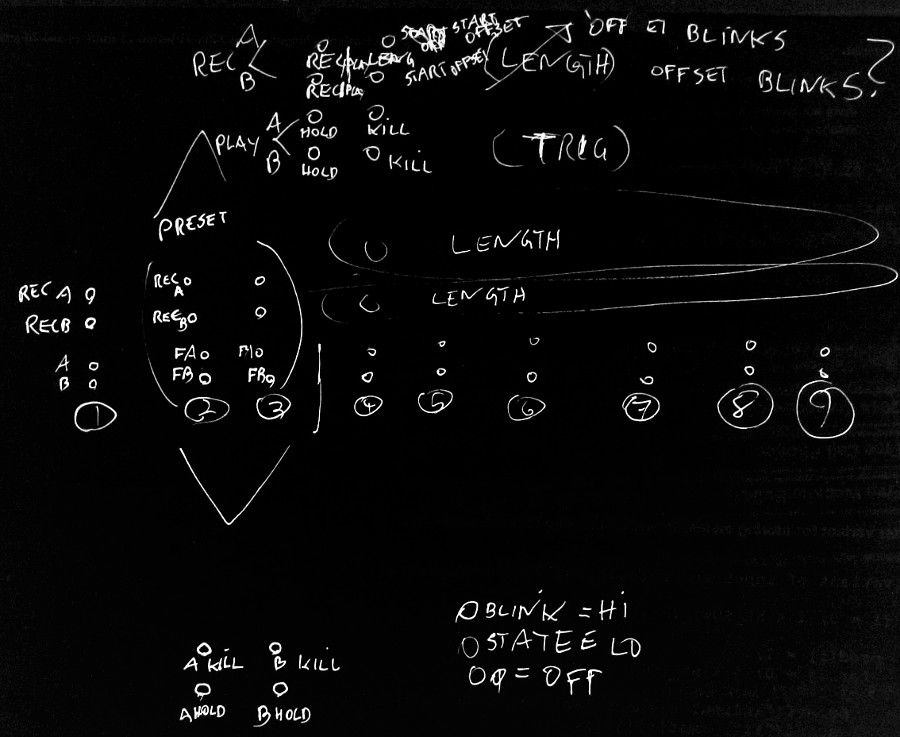 A START OFFSET
REC REC/PLA LENG OFF BLINKS
B REC/PLA START OFFSET (LENGTH) OFFSET BLINKS?
PLAY A HOLD KILL
B HOLD KILL
(TRIG)
PRESET
LENGTH
REC A REC A LENGTH
REC B REC B
A FA
B FB FB
1 2 3 4 5 6 7 8 9
BLINK = Hi
STATE
= OFF
A KILL B KILL
A HOLD B HOLD